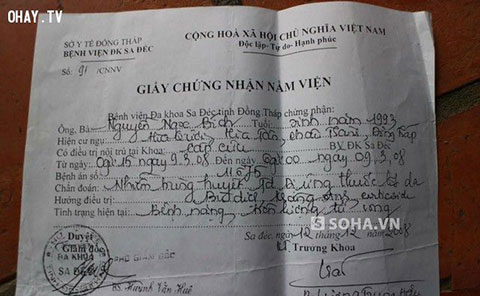 OHAY.TV
SỞ Y TẾ ĐỒNG THÁP
BỆNH VIỆN ĐK SA ĐÉC
Số: 91 /CNNV
CỘNG HOÀ XÃ HỘI CHỦ NGHĨA VIỆT NAM
Độc lập-Tự do-Hạnh phúc
GIẤY CHỨNG NHẬN NẰM VIỆN
Bệnh viện Đa khoa Sa Đéc tỉnh Đồng Tháp chứng nhận:
Ông, Bà: Nguyễn Ngọc Bích Tuổi: sinh năm 1993
Hiện cư ngụ: Hòa Tân, Châu Thành, Đồng Tháp
Có điều trị nội trú tại Khoa: cấp cứu BV ĐK Sa Đéc
Từ ngày: 15 ngày 9.3.08 Đến ngày 00 ngày 09.3.08
Bệnh án số:
Chẩn đoán: Nhiễm trùng huyết dị ứng thuốc
Hướng điều trị: kháng sinh,
Tình trạng hiện tại: Bệnh nặng, tiên lượng tử vong
SOHA.VN
Sa đéc, ngày 12 tháng 12 năm 2008
Duyệt
Giám đốc
Trưởng Khoa
PHÓ GIÁM ĐỐC
ĐA KHOA
SA ĐÉC
BS. Huỳnh Văn Huê